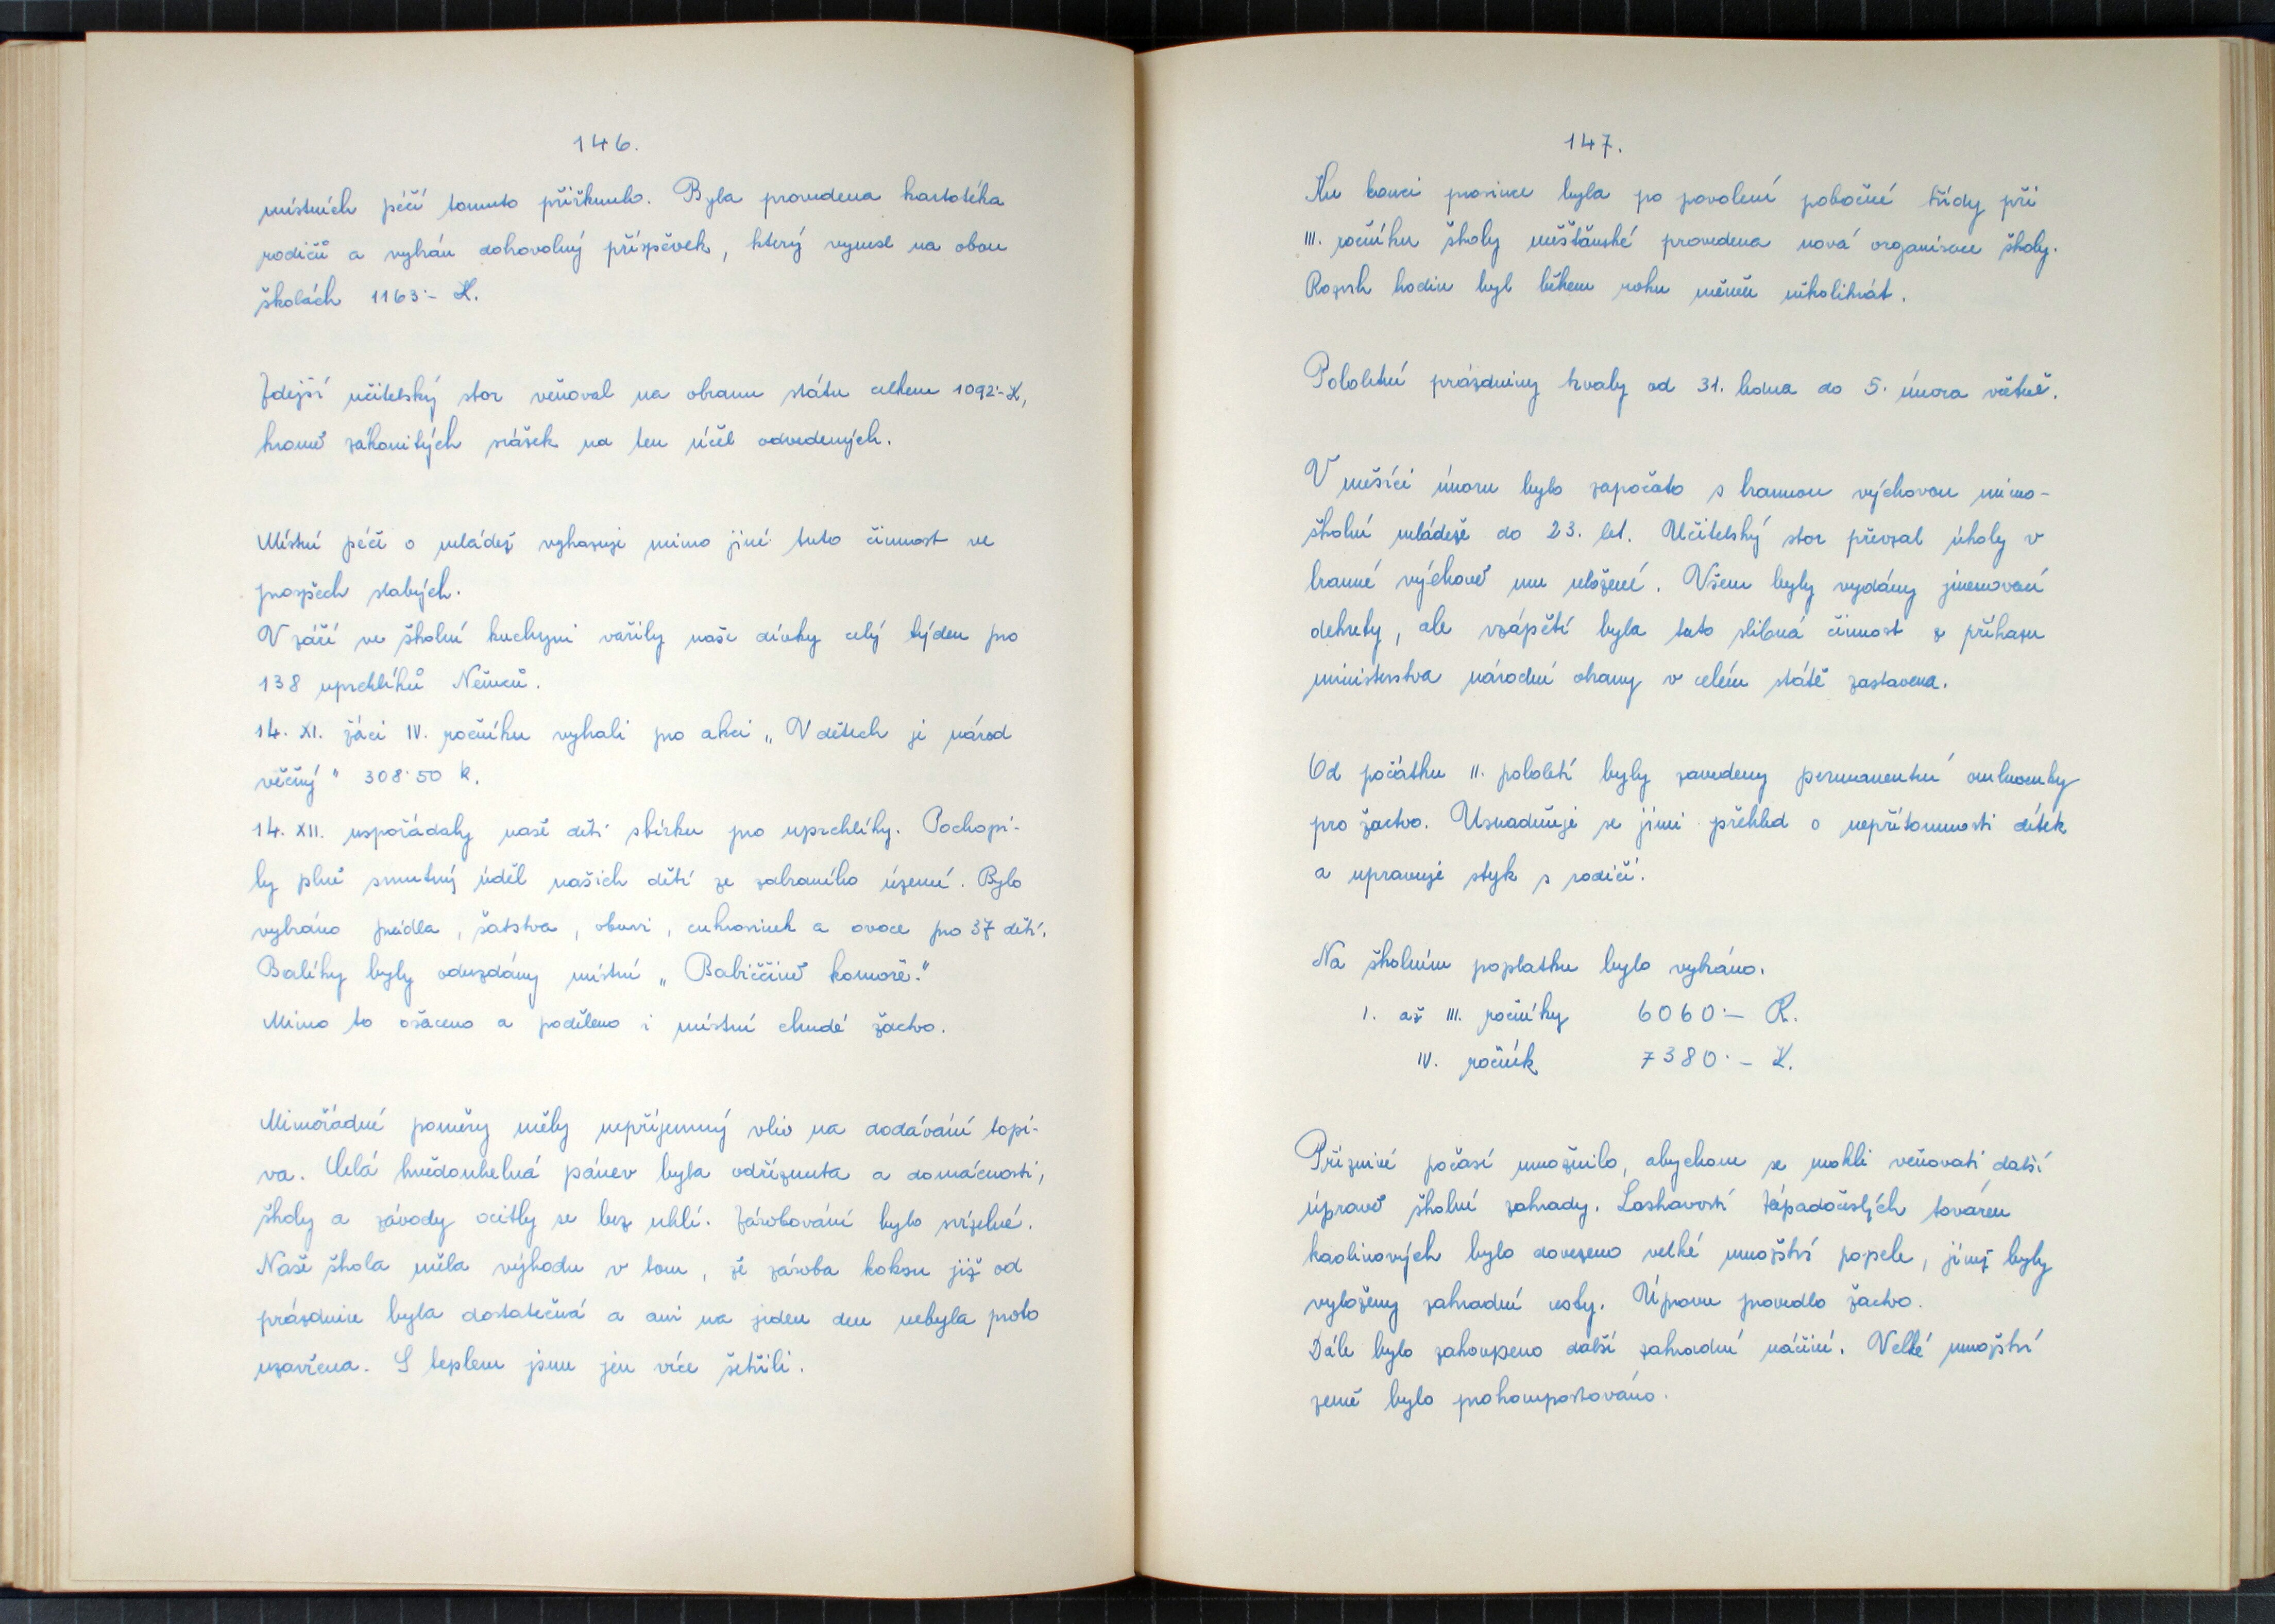 146.
místních péčí tomuto přiřknula. Byla provedena kartotéka
rodičů a vybrán dobrovolný příspěvek, který vynesl na obou
školách 1163·- K.
Zdejší učitelský sbor věnoval na obranu státu celkem 1092·-K,
kromě zákonitých srážek na ten účel odvedených.
Místní péče o mládež vykazuje mimo jiné tuto činnost ve
prospěch slabých.
V září ve školní kuchyni vařily naše dívky celý týden pro
138 uprchlíků Němců.
14. XI. žáci IV. ročníku vybrali pro akci „V dětech je národ
věčný" 308·50 K.
14. XII. uspořádaly naše děti sbírku pro uprchlíky. Pochopi-
ly plně smutný úděl našich dětí ze zabraného území. Bylo
vybráno prádla, šatstva, obuvi, cukrovinek a ovoce pro 37 dětí.
Balíky byly odevzdány místní „Babiččině komoře."
Mimo to ošaceno a poděleno i místní chudé žactvo.
Mimořádné poměry měly nepříjemný vliv na dodávání topi-
va. Celá hnědouhelná pánev byla odříznuta a domácnosti,
školy a závody ocitly se bez uhlí. Zásobování bylo svízelné.
Naše škola měla výhodu v tom, že zásoba koksu již od
prázdnin byla dostatečná a ani na jeden den nebyla proto
uzavřena. S teplem jsme jen více šetřili.
147.
Ku konci prosince byla po povolení pobočné třídy při
III. ročníku školy měšťanské provedena nová organisace školy.
Rozvrh hodin byl během roku měněn několikrát.
Pololetní prázdniny trvaly od 31. ledna do 5. února včetně.
V měsíci únoru bylo započato s brannou výchovou mimo-
školní mládeže do 23. let. Učitelský sbor převzal úkoly v
branné výchově mu uložené. Všem byly vydány jmenovací
dekrety, ale vzápětí byla tato slibná činnost z příkazu
ministerstva národní obrany v celém státě zastavena.
Od počátku II. pololetí byly zavedeny permanentní omluvenky
pro žactvo. Usnadňuje se jimi přehled o nepřítomnosti dítek
a upravuje styk s rodiči.
Na školním poplatku bylo vybráno.
I. až III. ročníky 6060·- K.
IV. ročník 7380·- K.
Příznivé počasí umožnilo, abychom se mohli věnovati další
úpravě školní zahrady. Laskavostí Západočeských továren
kaolinových bylo dovezeno velké množství popele, jímž byly
vyloženy zahradní cesty. Úpravu provedlo žactvo.
Dále bylo zakoupeno další zahradní náčiní. Velké množství
země bylo prokompostováno.